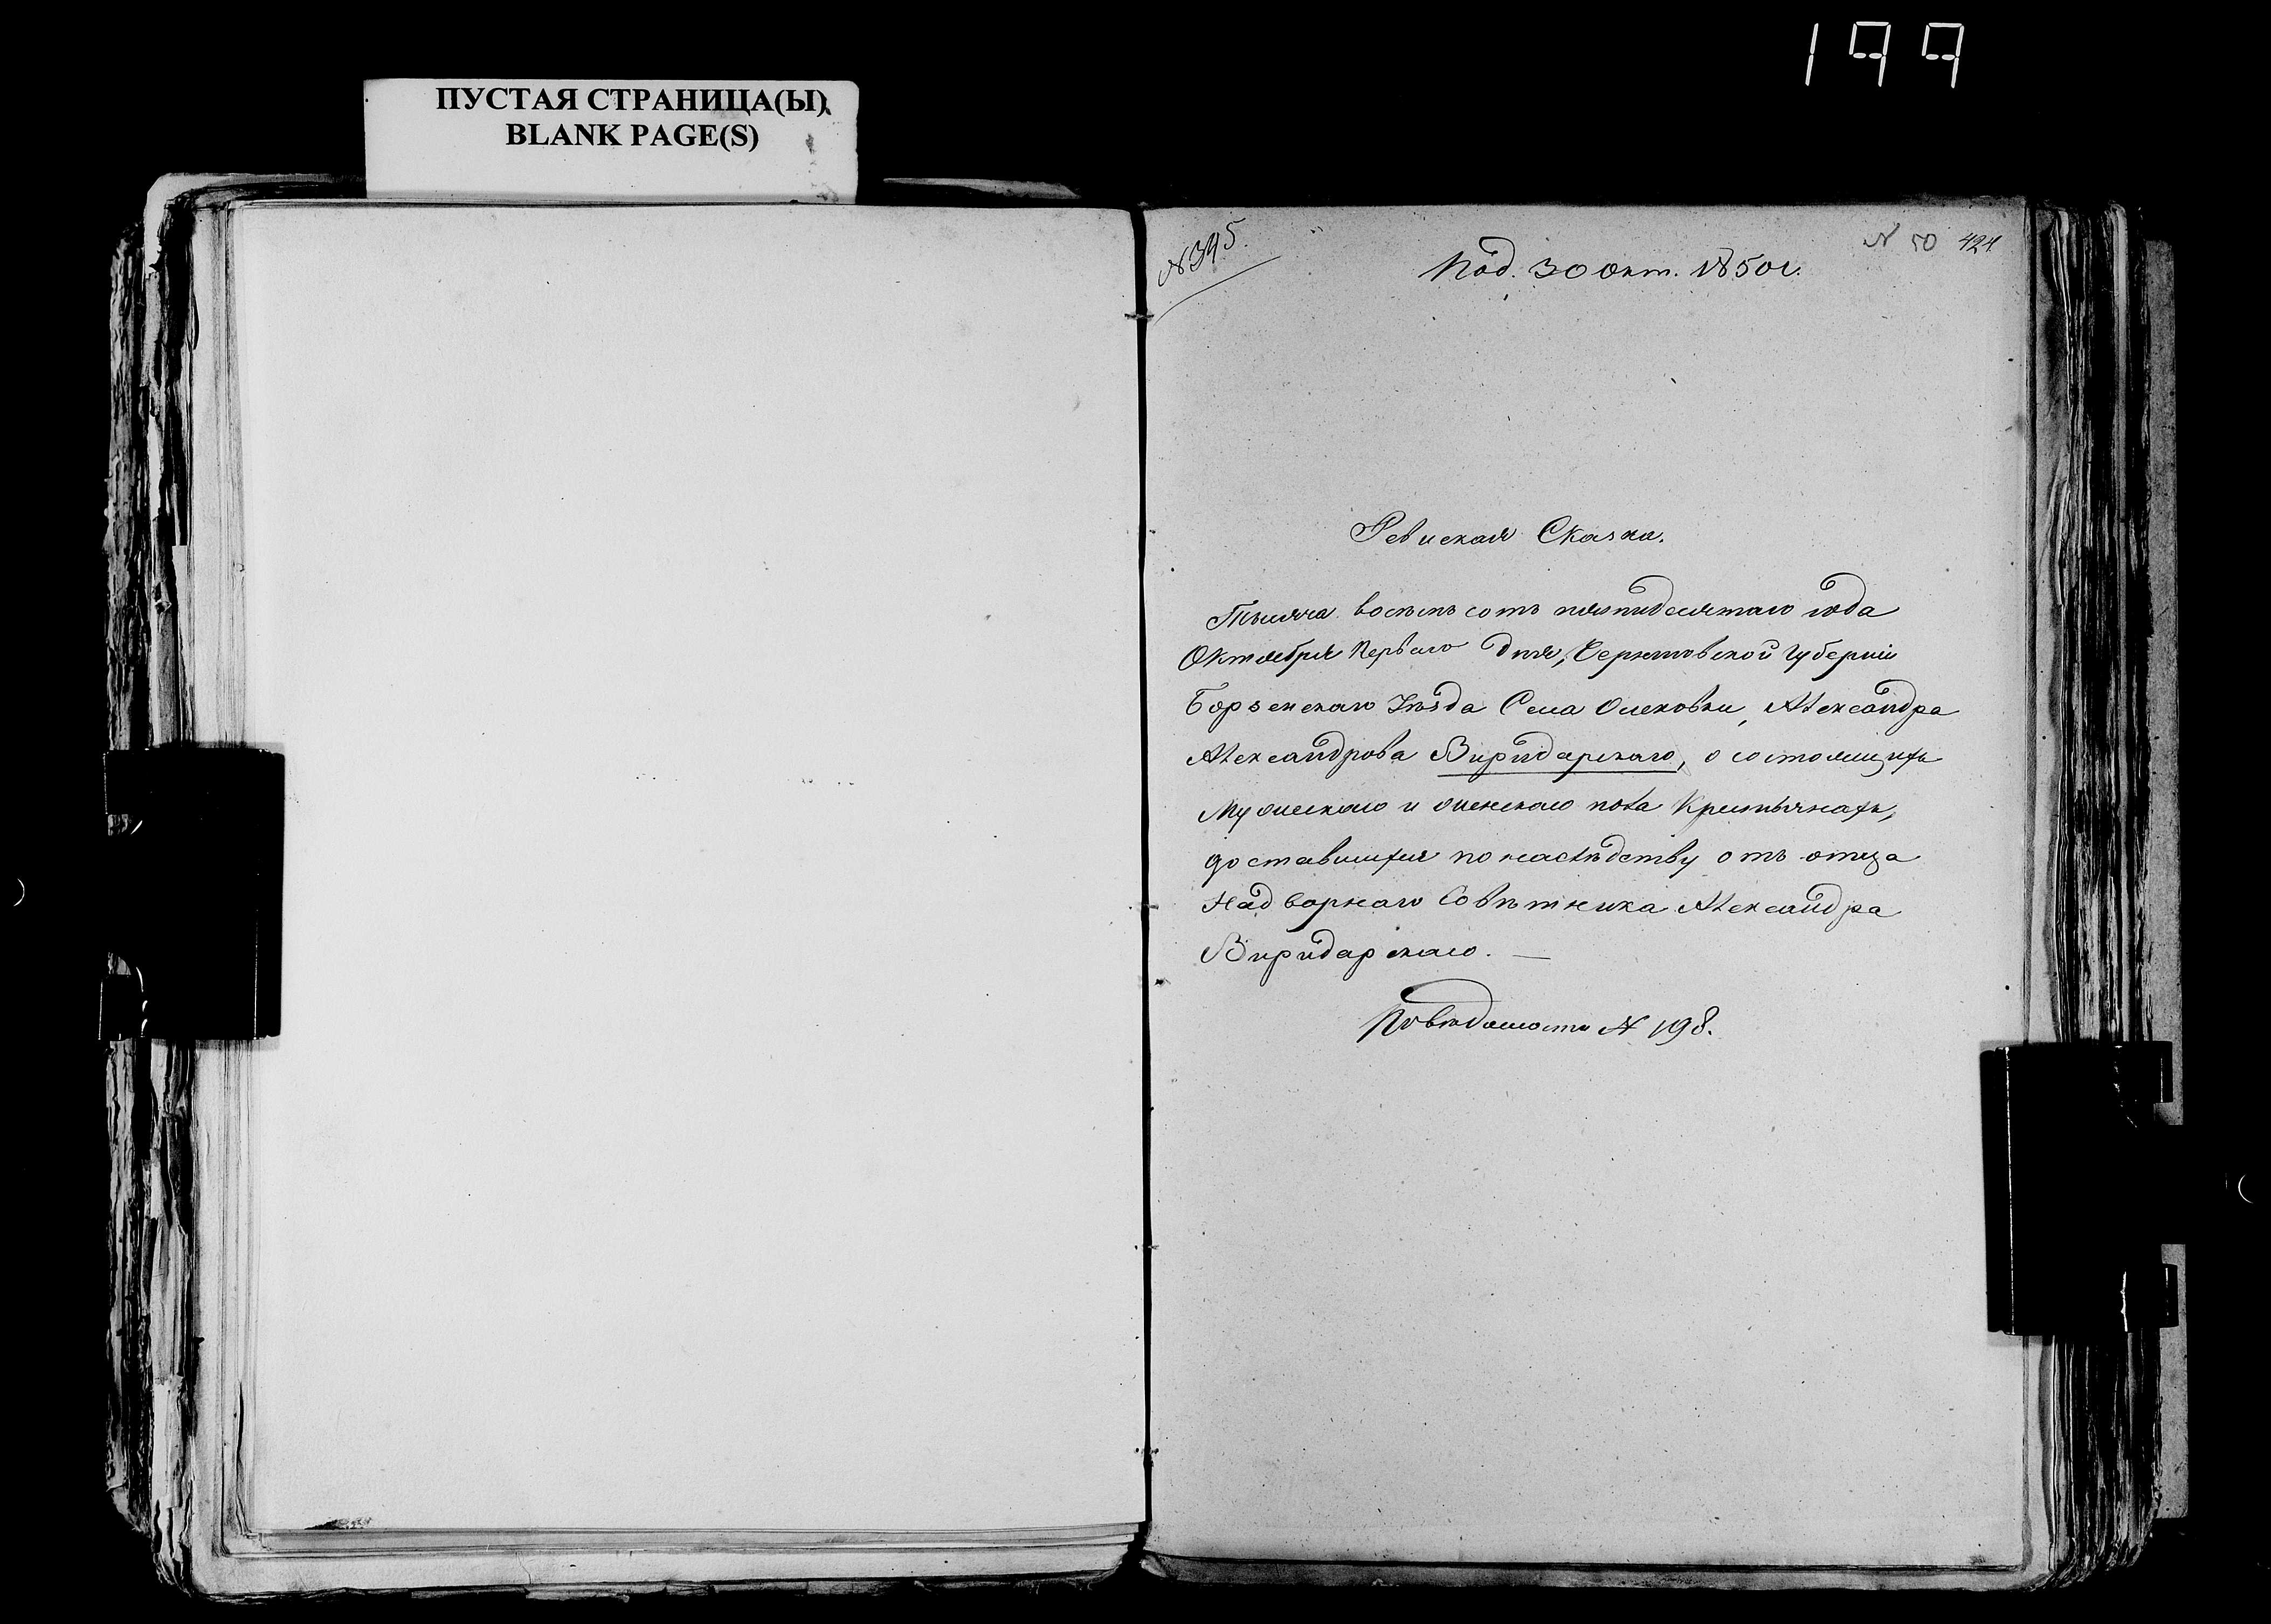 199
ПУСТАЯ СТРАНИЦА(Ы)
BLANK PAGE(S)
N 395.
N 50 424
Под. 30 Окт. 1850 г.
Ревиская Сказка.
Тысяча восемь сотъ пятидесятаго года
Октября Первого дня, Черниговской Губерніи
Борзенскаго Уѣзда Села Оленовки, Александра
Александрова Виридарскаго, о состоящихъ
Мужескаго и женскаго пола Крестьянахъ,
доставшихся по наслѣдству отъ отца
Надворнаго Совѣтника Александра
Виридарскаго. —
По вѣдомости N 198.